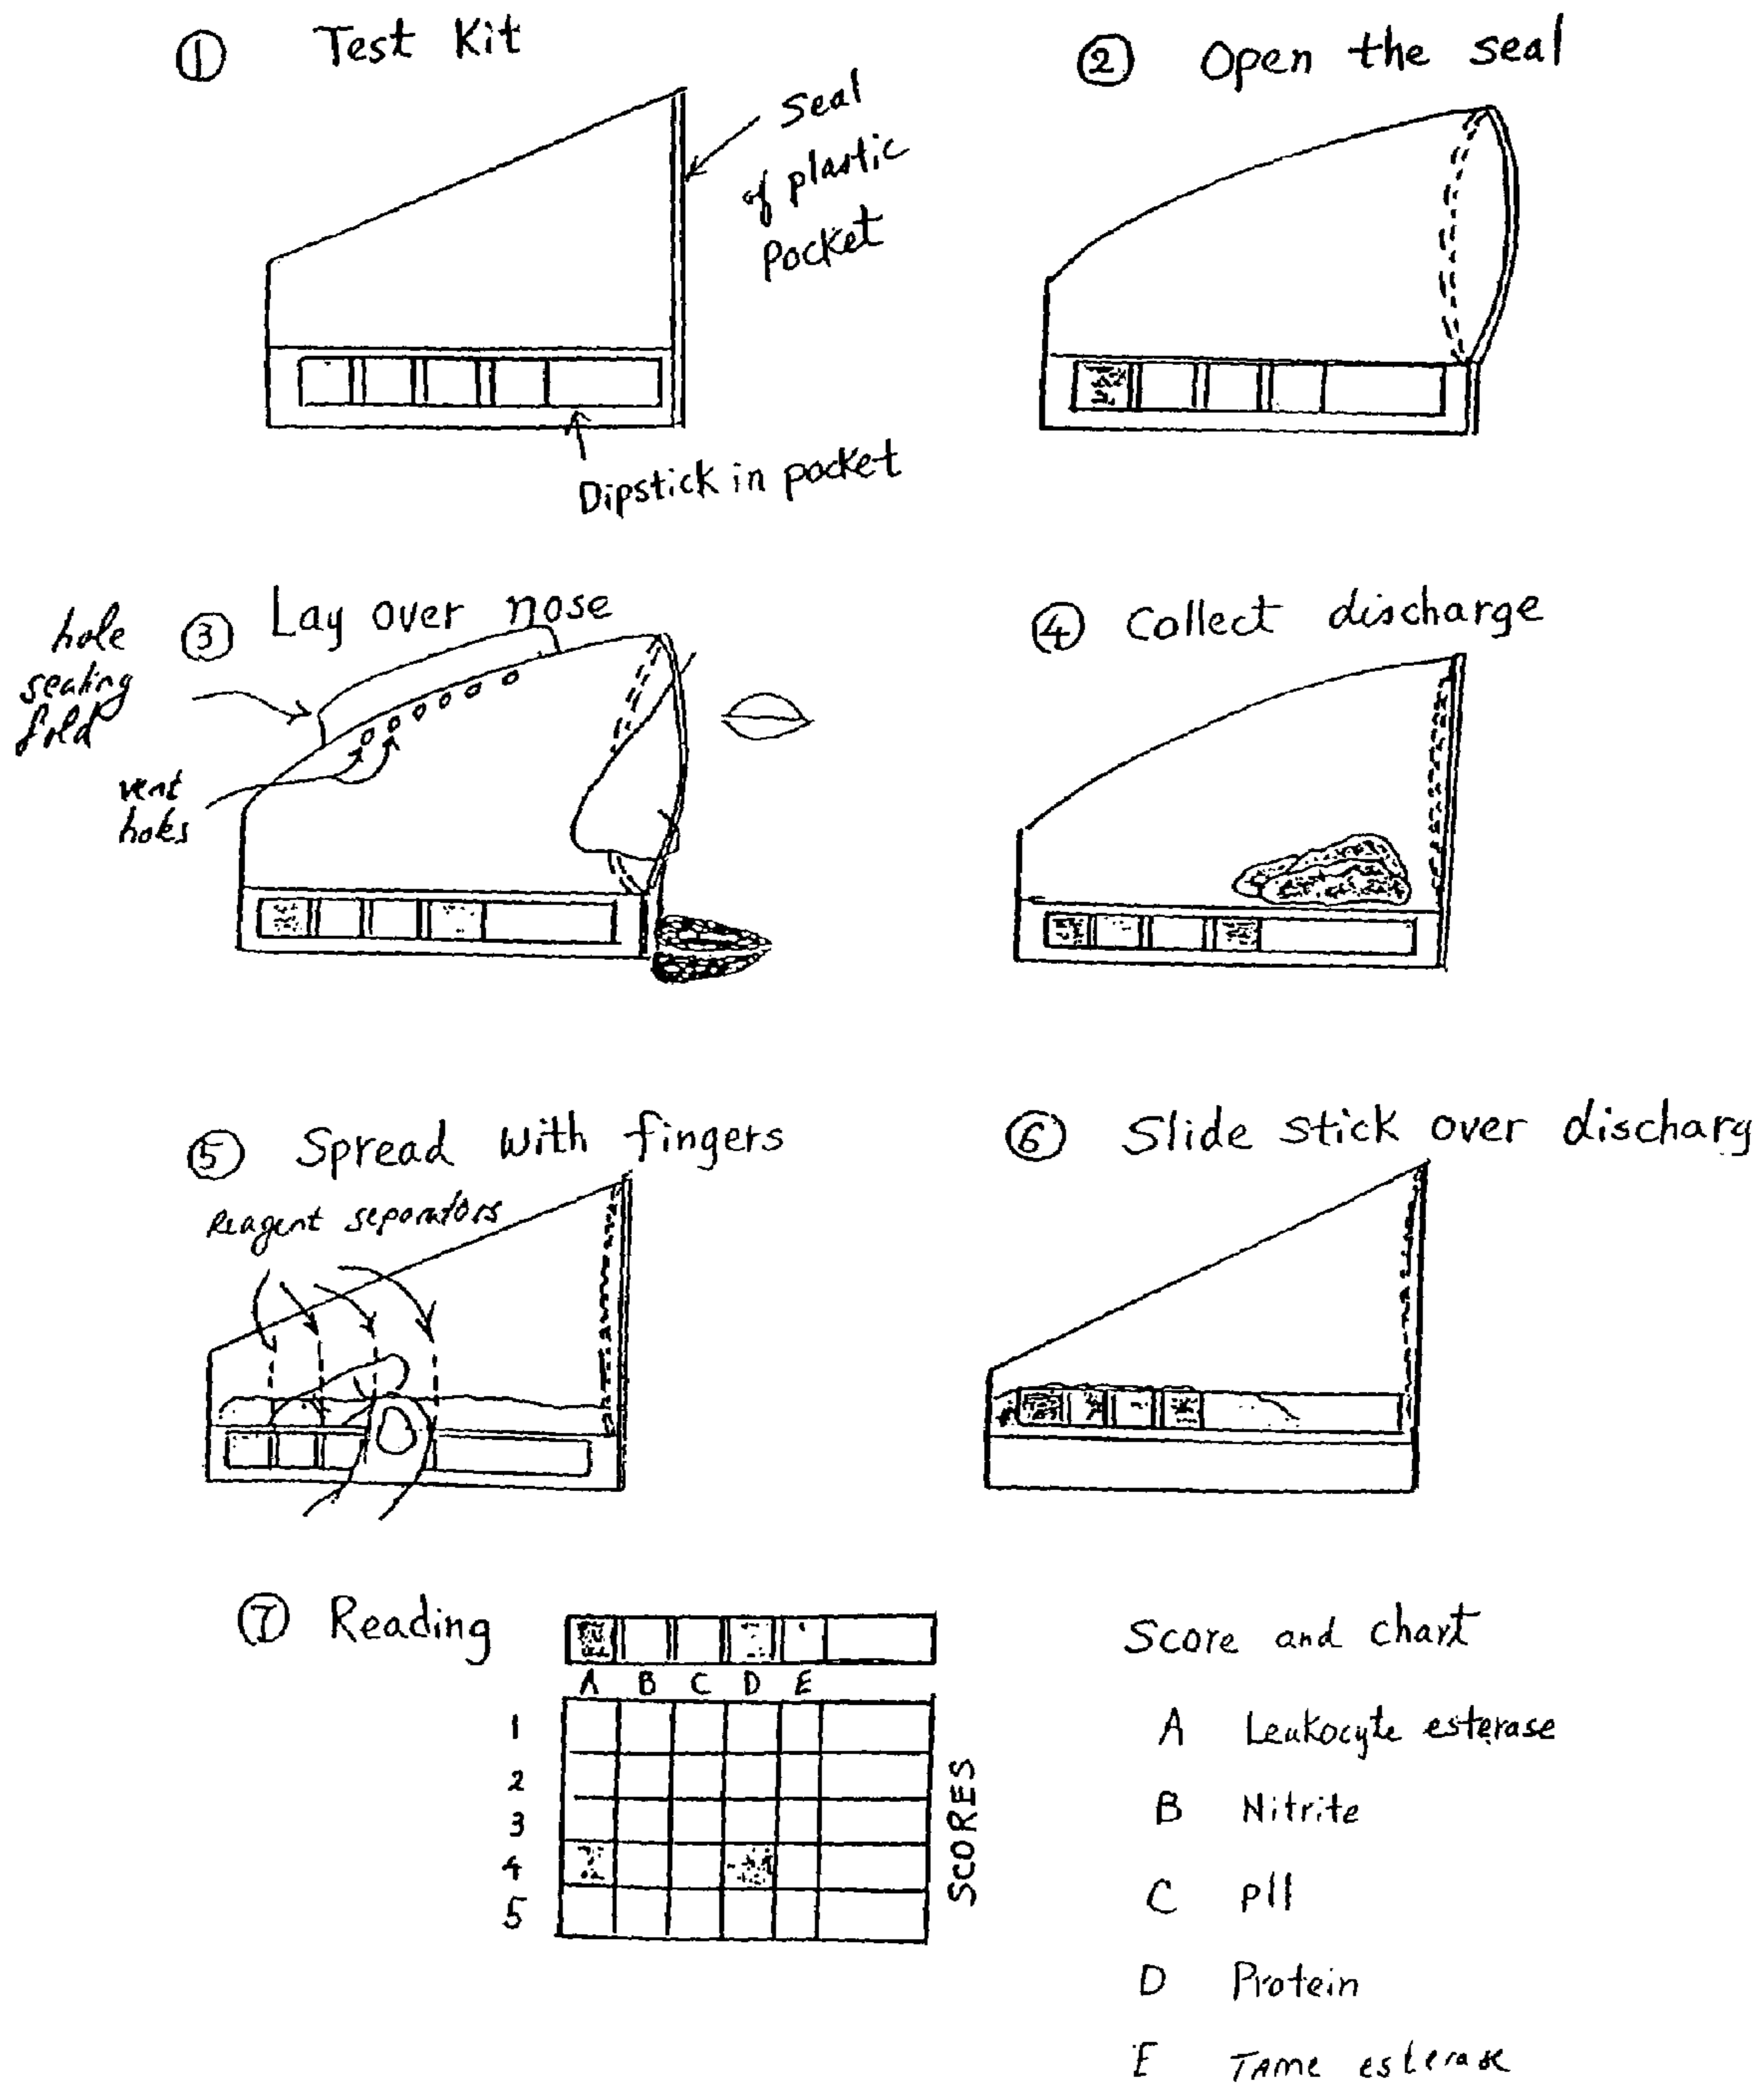 ① Test Kit
Seal
of plastic
Pocket
Dipstick in pocket
② Open the seal
③ Lay over nose
hole
sealing
fold
vent
holes
④ Collect discharge
⑤ Spread with fingers
Reagent separators
⑥ Slide stick over discharg
⑦ Reading
A B C D E
1
2
3
4
5
SCORES
Score and chart
A Leukocyte esterase
B Nitrite
C pH
D Protein
E TAme esterase